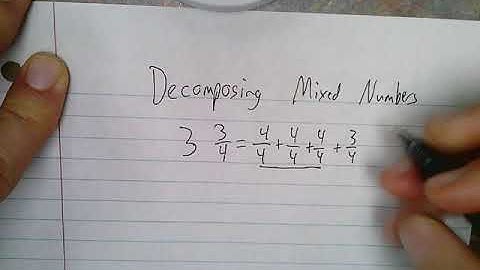 Decomposing Mixed Numbers
3 3/4 = 4/4 + 4/4 + 4/4 + 3/4